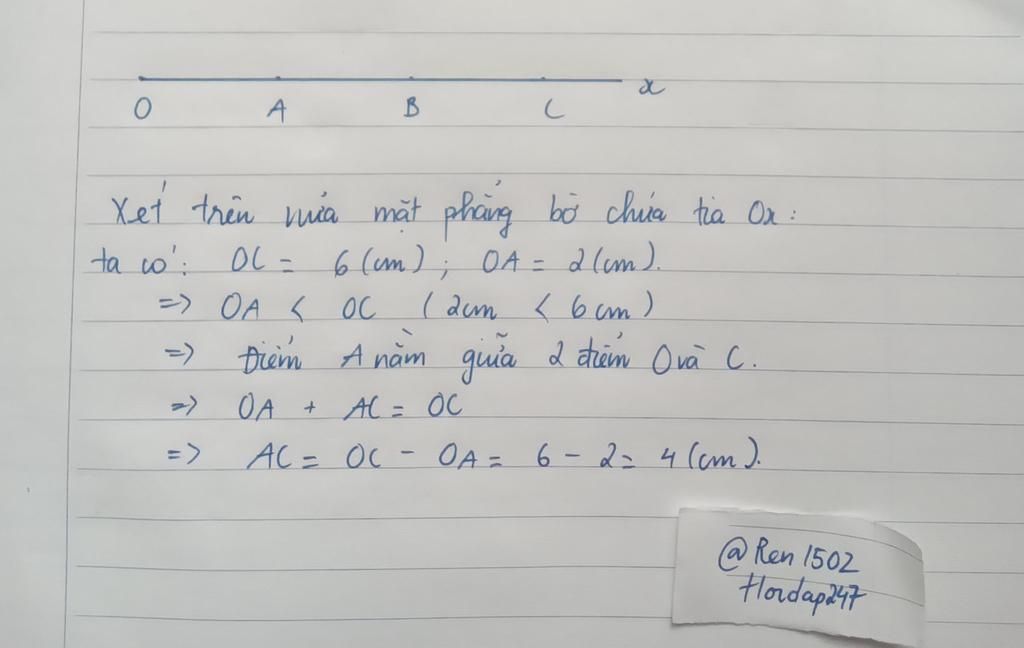 x
O A B C
Xét trên nửa mặt phẳng bờ chứa tia Ox:
ta có: OC = 6 (cm); OA = 2 (cm).
=> OA < OC (2cm < 6cm)
=> Điểm A nằm giữa 2 điểm O và C.
=> OA + AC = OC
=> AC = OC - OA = 6 - 2 = 4 (cm).
@Ren1502
Hoidap247